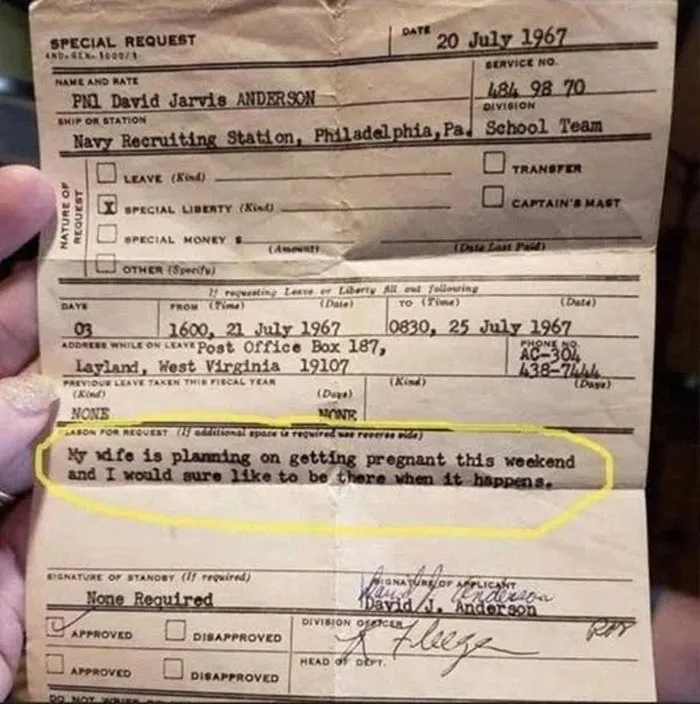 SPECIAL REQUEST
DATE 20 July 1967
NAME AND RATE
SERVICE NO.
PN1 David Jarvis ANDERSON
484 98 70
SHIP OR STATION
DIVISION
Navy Recruiting Station, Philadelphia, Pa. School Team
NATURE OF REQUEST
LEAVE (Kind)
TRANSFER
X SPECIAL LIBERTY (Kind)
CAPTAIN'S MAST
SPECIAL MONEY $
(Amount) (Date Last Paid)
OTHER (Specify)
If requesting Leave or Liberty fill out following
DAYS FROM (Time) (Date) TO (Time) (Date)
03 1600, 21 July 1967 0830, 25 July 1967
ADDRESS WHILE ON LEAVE Post Office Box 187,
PHONE NO.
AC-304
Layland, West Virginia 19107
438-7444
PREVIOUS LEAVE TAKEN THIS FISCAL YEAR
(Kind) (Days) (Kind) (Days)
NONE NONE
REASON FOR REQUEST (If additional space is required use reverse side)
My wife is planning on getting pregnant this weekend
and I would sure like to be there when it happens.
SIGNATURE OF STANDBY (If required)
SIGNATURE OF APPLICANT
None Required
David J. Anderson
David J. Anderson
APPROVED DISAPPROVED
DIVISION OFFICER
APPROVED DISAPPROVED
HEAD OF DEPT.